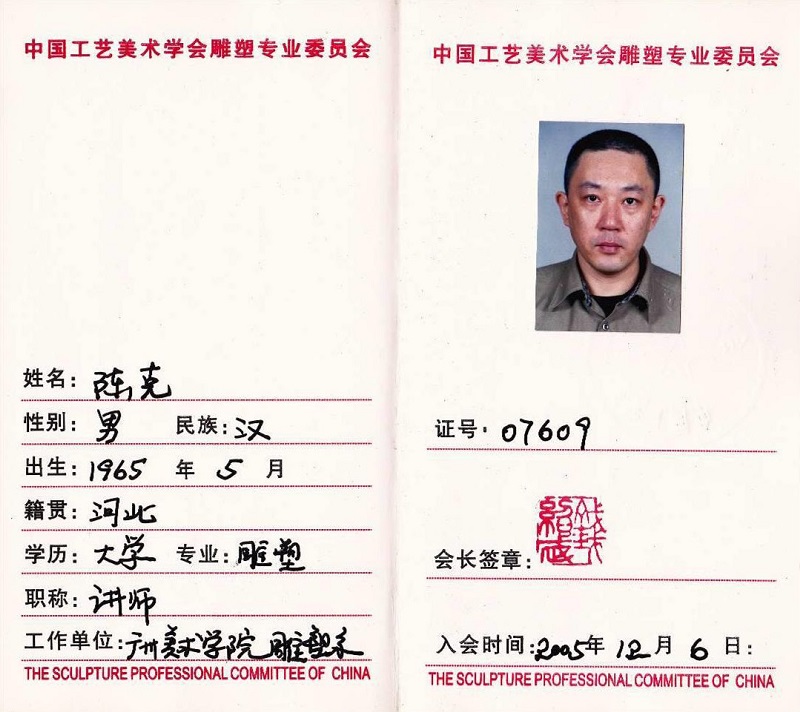 中国工艺美术学会雕塑专业委员会
姓名：陈克
性别：男 民族：汉
出生：1965 年 5 月
籍贯：河北
学历：大学 专业：雕塑
职称：讲师
工作单位：广州美术学院雕塑系
THE SCULPTURE PROFESSIONAL COMMITTEE OF CHINA
中国工艺美术学会雕塑专业委员会
证号：07609
会长签章：
入会时间：2005年 12 月 6 日：
THE SCULPTURE PROFESSIONAL COMMITTEE OF CHINA